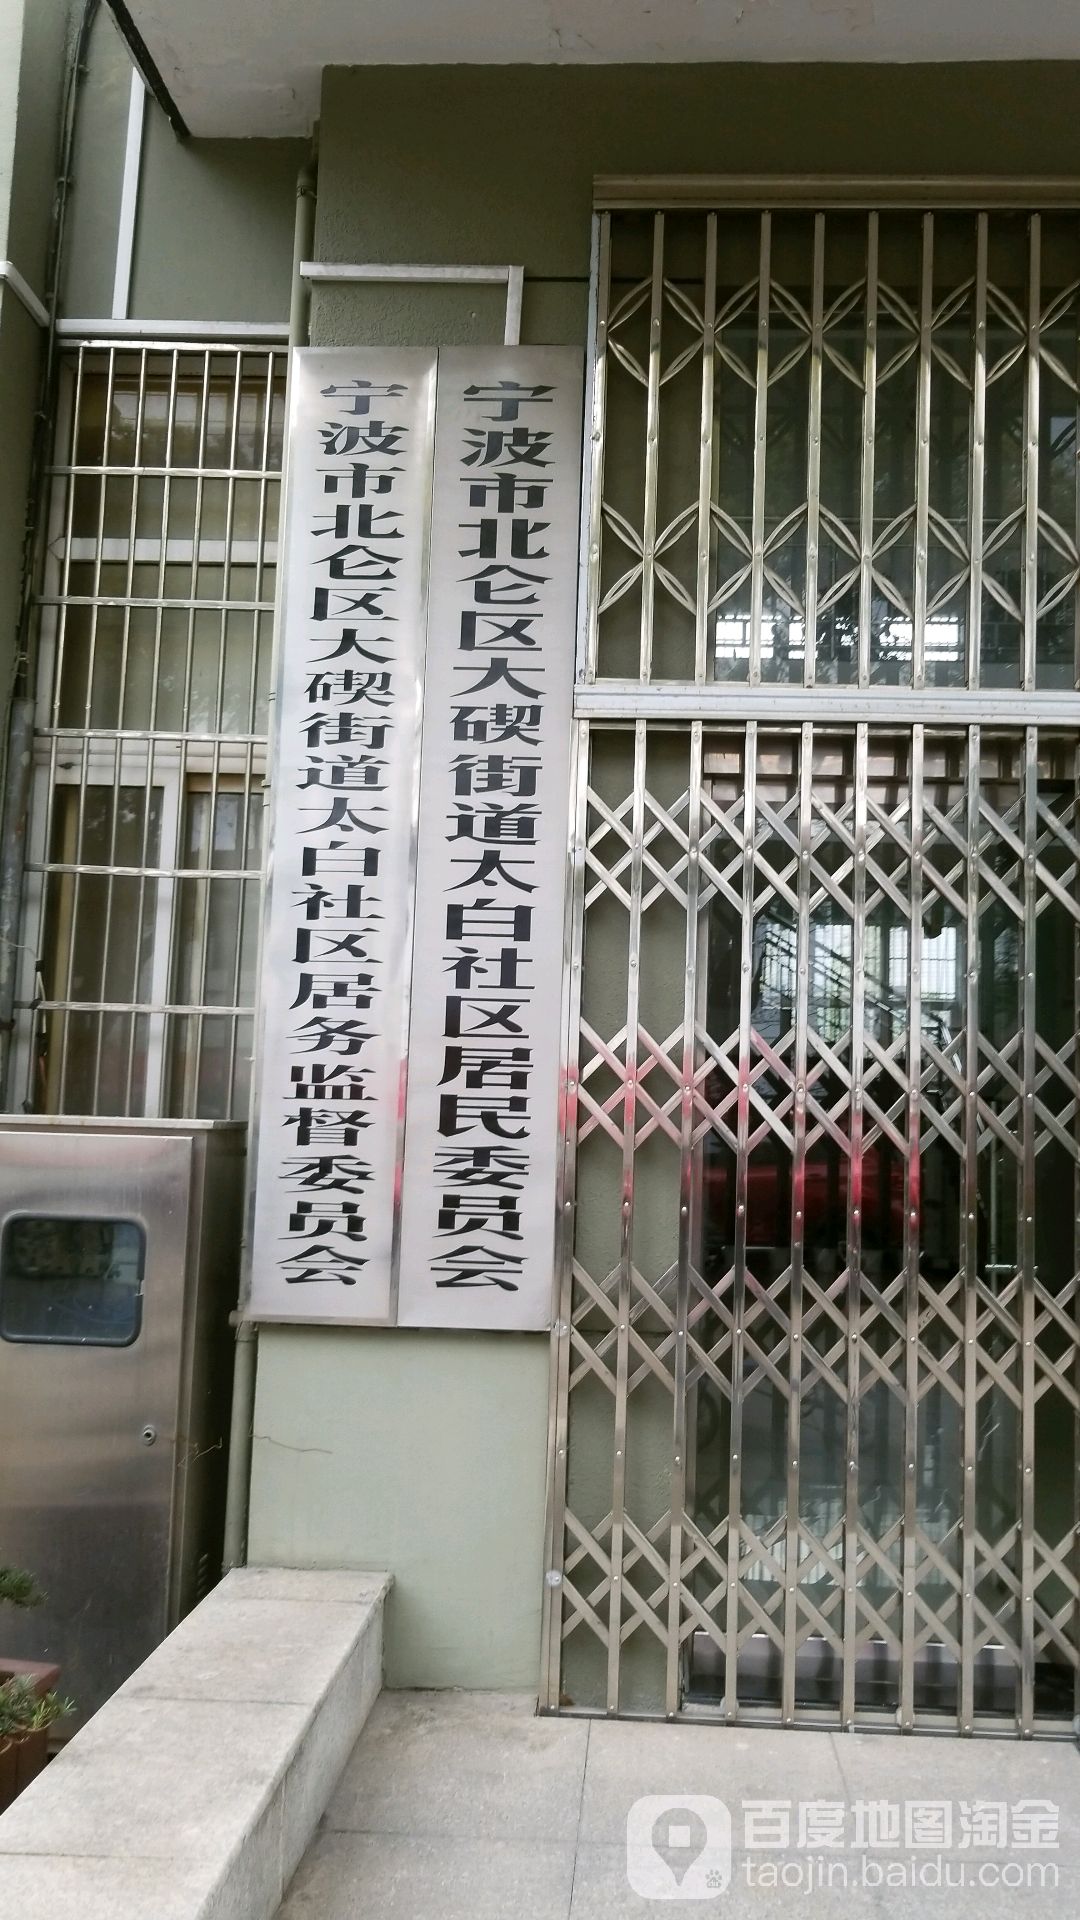 宁波市北仑区大碶街道太白社区居民委员会
宁波市北仑区大碶街道太白社区居务监督委员会
百度地图淘金
taojin.baidu.com